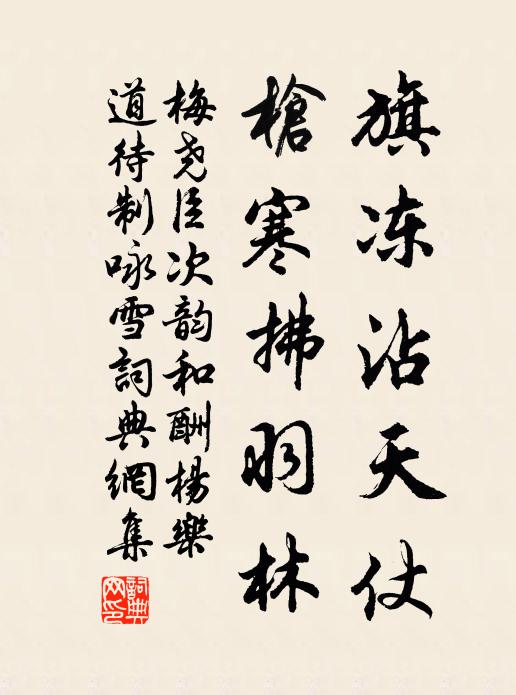 旗冻沾天仗
槍寒拂羽林
梅尧臣次韵和酬楊樂
道待制咏雪詞典網集
詞典网印